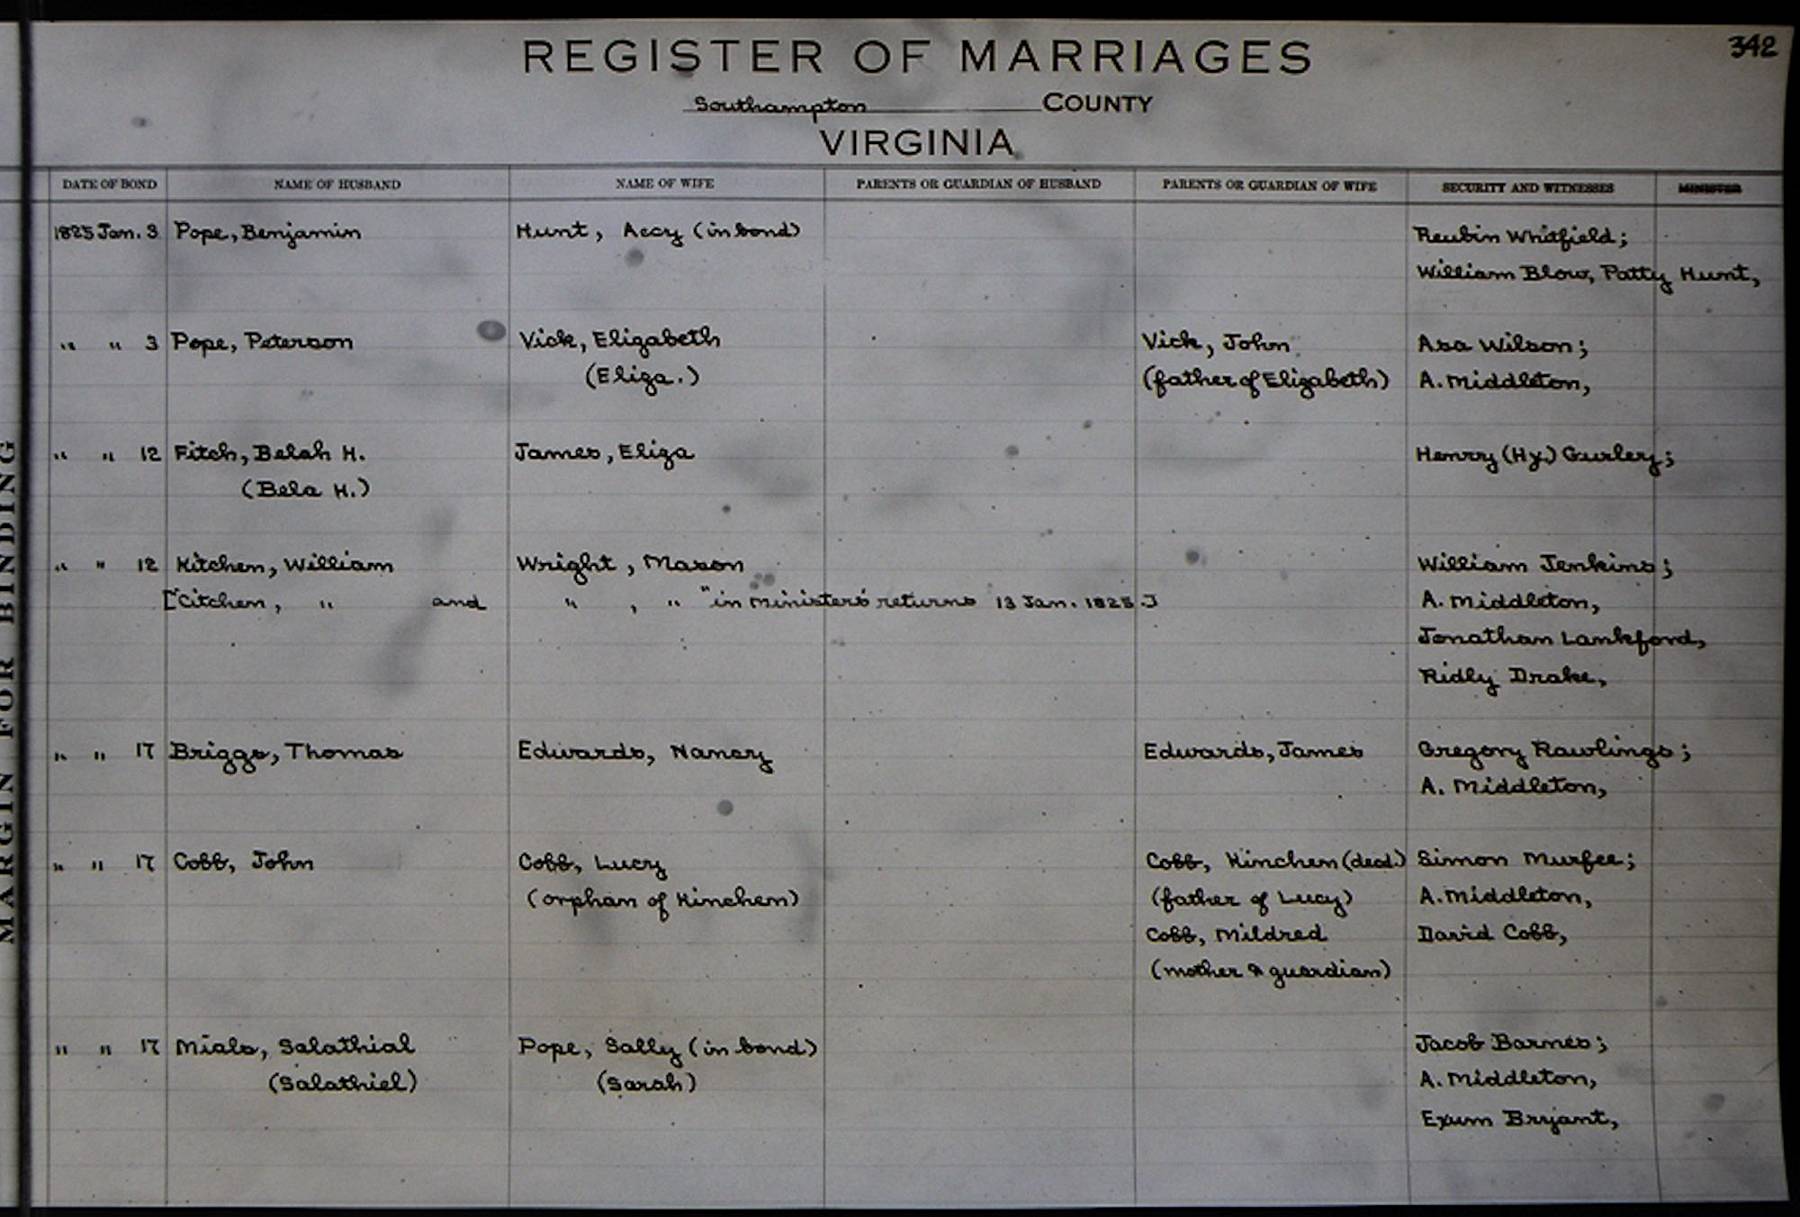 342
REGISTER OF MARRIAGES
Southampton COUNTY
VIRGINIA
MARGIN FOR BINDING
DATE OF BOND NAME OF HUSBAND NAME OF WIFE PARENTS OR GUARDIAN OF HUSBAND PARENTS OR GUARDIAN OF WIFE SECURITY AND WITNESSES MINISTER
1825 Jan. 3 Pope, Benjamin Hunt, Accy (in bond) Reubin Whitfield;
William Blow, Patty Hunt,
" " 3 Pope, Peterson Vick, Elizabeth Vick, John Asa Wilson;
(Eliza.) (father of Elizabeth) A. Middleton,
" " 12 Fitch, Belah H. James, Eliza Henry (Hy.) Gurley;
(Bela H.)
" " 12 Kitchen, William Wright, Mason William Jenkins;
["Citchen, " and " , " " in ministers' returns 13 Jan. 1825.] A. Middleton,
Jonathan Lankford,
Ridly Drake,
" " 17 Briggs, Thomas Edwards, Nancy Edwards, James Gregory Rawlings;
A. Middleton,
" " 17 Cobb, John Cobb, Lucy Cobb, Kinchen (decd.) Simon Murfee;
(orphan of Kinchen) (father of Lucy) A. Middleton,
Cobb, Mildred David Cobb,
(mother & guardian)
" " 17 Mials, Salathial Pope, Sally (in bond) Jacob Barnes;
(Salathiel) (Sarah) A. Middleton,
Exum Bryant,